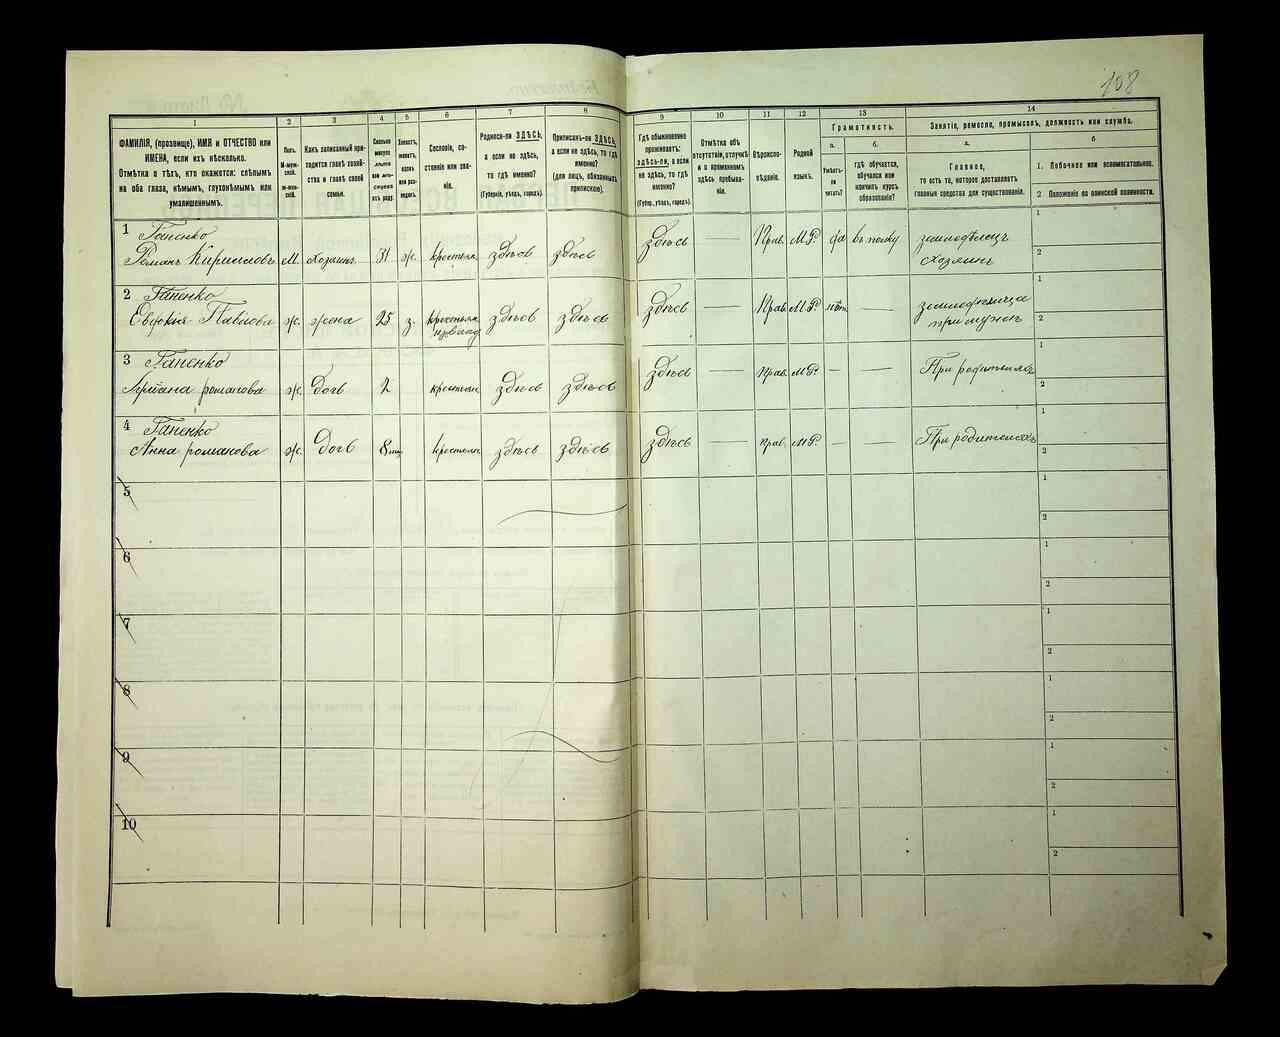 108
1
2
3
4
5
6
7
8
9
10
11
12
13
14
ФАМИЛІЯ, (прозвище), ИМЯ и ОТЧЕСТВО или
ИМЕНА, если ихъ нѣсколько.
Отмѣтка о тѣхъ, кто окажется: слѣпымъ
на оба глаза, нѣмымъ, глухонѣмымъ или
умалишеннымъ.
Полъ.
М-муж-
ской.
ж-жен-
скій.
Какъ записанный при-
ходится главѣ хозяй-
ства и главѣ своей
семьи.
Сколько
минуло
лѣтъ
или мѣ-
сяцевъ
отъ роду.
Сословіе, со-
стояніе или зва-
ніе.
Родился-ли ЗДѢСЬ,
а если не здѣсь,
то гдѣ именно?
(Губернія, уѣздъ, городъ).
Приписанъ-ли ЗДѢСЬ,
а если не здѣсь, то гдѣ
именно?
(для лицъ, обязанныхъ
припиской).
Гдѣ обыкновенно
проживаетъ:
здѣсь-ли, а если
не здѣсь, то гдѣ
именно?
(Губер., уѣздъ, городъ).
Отмѣтка объ
отсутствіи, отлучкѣ
и о временномъ
здѣсь пребыва-
ніи.
Вѣроиспо-
вѣданіе.
Родной
языкъ.
Грамотность.
а.
б.
Умѣетъ-
ли
читать?
гдѣ обучается,
обучался или
кончилъ курсъ
образованія?
Занятіе, ремесло, промыселъ, должность или служба.
а.
б
Главное,
то есть то, которое доставляетъ
главныя средства для существованія.
1. Побочное или вспомогательное.
2 Положеніе по воинской повинности.
1 Гапенко
Романъ Кирилловъ м. хозяинъ 31 ж. крестьян. здѣсь здѣсь здѣсь — Прав. М.Р. да въ полку земледѣлецъ
хозяинъ
1
2
2 Гапенко
Евдокия Павлова ж. жена 25 з. здѣсь здѣсь здѣсь — Прав. М.Р. нѣтъ — земледѣлица
при мужѣ
1
2
3 Гапенко
романова ж. дочь 2 крестьян. здѣсь здѣсь здѣсь — прав. М.Р. — — При родителяхъ
1
2
4 Гапенко
Анна романова ж. дочь 8 мц крестьян. здѣсь здѣсь здѣсь — прав. М.Р. — — При родителяхъ
1
2
5
1
2
6
1
2
7
1
2
8
1
2
9
1
2
10
1
2